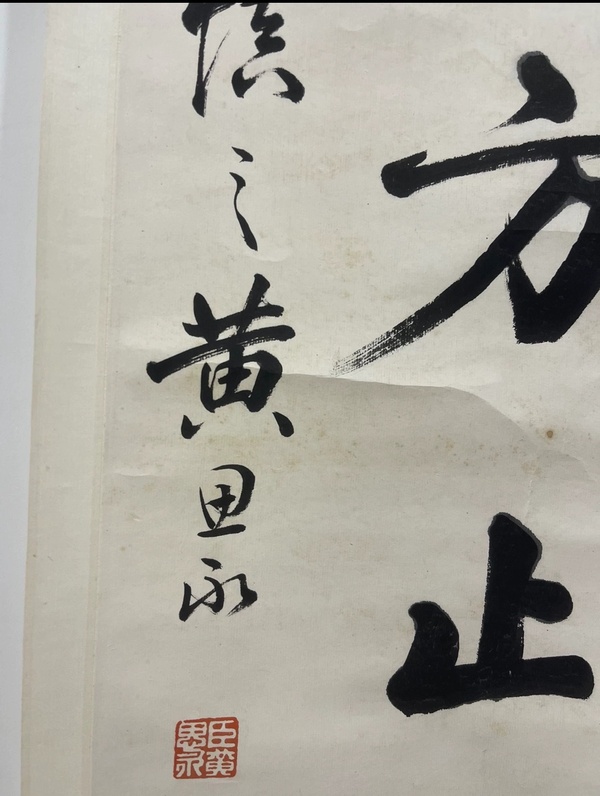 方止
慎之黄思永
臣黄
思永